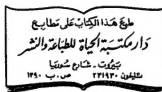 طبع هذا الكتاب على مطابع
دار مكتبة الحياة للطباعة والنشر
بيروت - شارع سوريا
تليفون ٢٢١٩٣٠ ص.ب ١٣٩٠